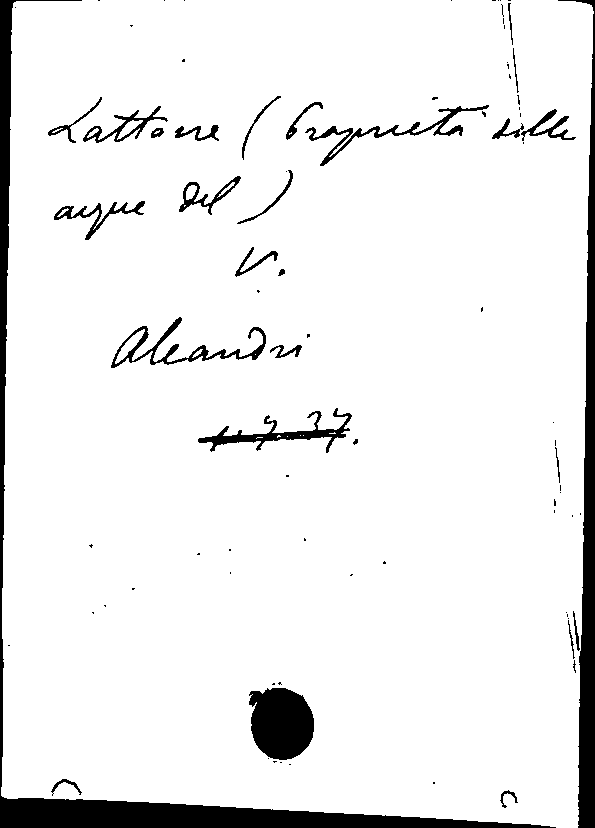 Lattone (Proprietà delle
acque del)
V.
Aleandri
1.7.37.